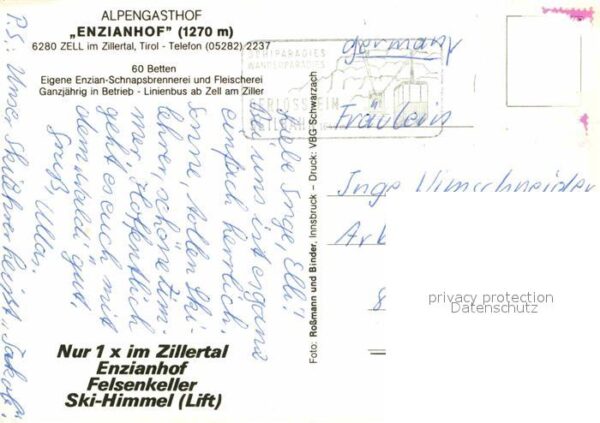 ALPENGASTHOF
„ENZIANHOF" (1270 m)
6280 ZELL im Zillertal, Tirol - Telefon (05282) 2237
60 Betten
Eigene Enzian-Schnapsbrennerei und Fleischerei
Ganzjährig in Betrieb - Linienbus ab Zell am Ziller
Liebe Inge, Elli!
Bei uns ist es ganz
einfach herrlich.
Sonne, tollen Ski-
lehrer, schöne Zim-
mer, Hoffentlich
geht es euch mit
dem "waldi" gut.
Gruß, Ulla.
P.S: Unser Skilehrer heißt "Jakob".
Nur 1 x im Zillertal
Enzianhof
Felsenkeller
Ski-Himmel (Lift)
Foto: Roßmann und Binder, Innsbruck – Druck: VBG-Schwarzach
SCHIPARADIES
WANDERPARADIES
GERLOSSTEIN
germany
Fräulein
Inge
Ark
8
privacy protection
Datenschutz